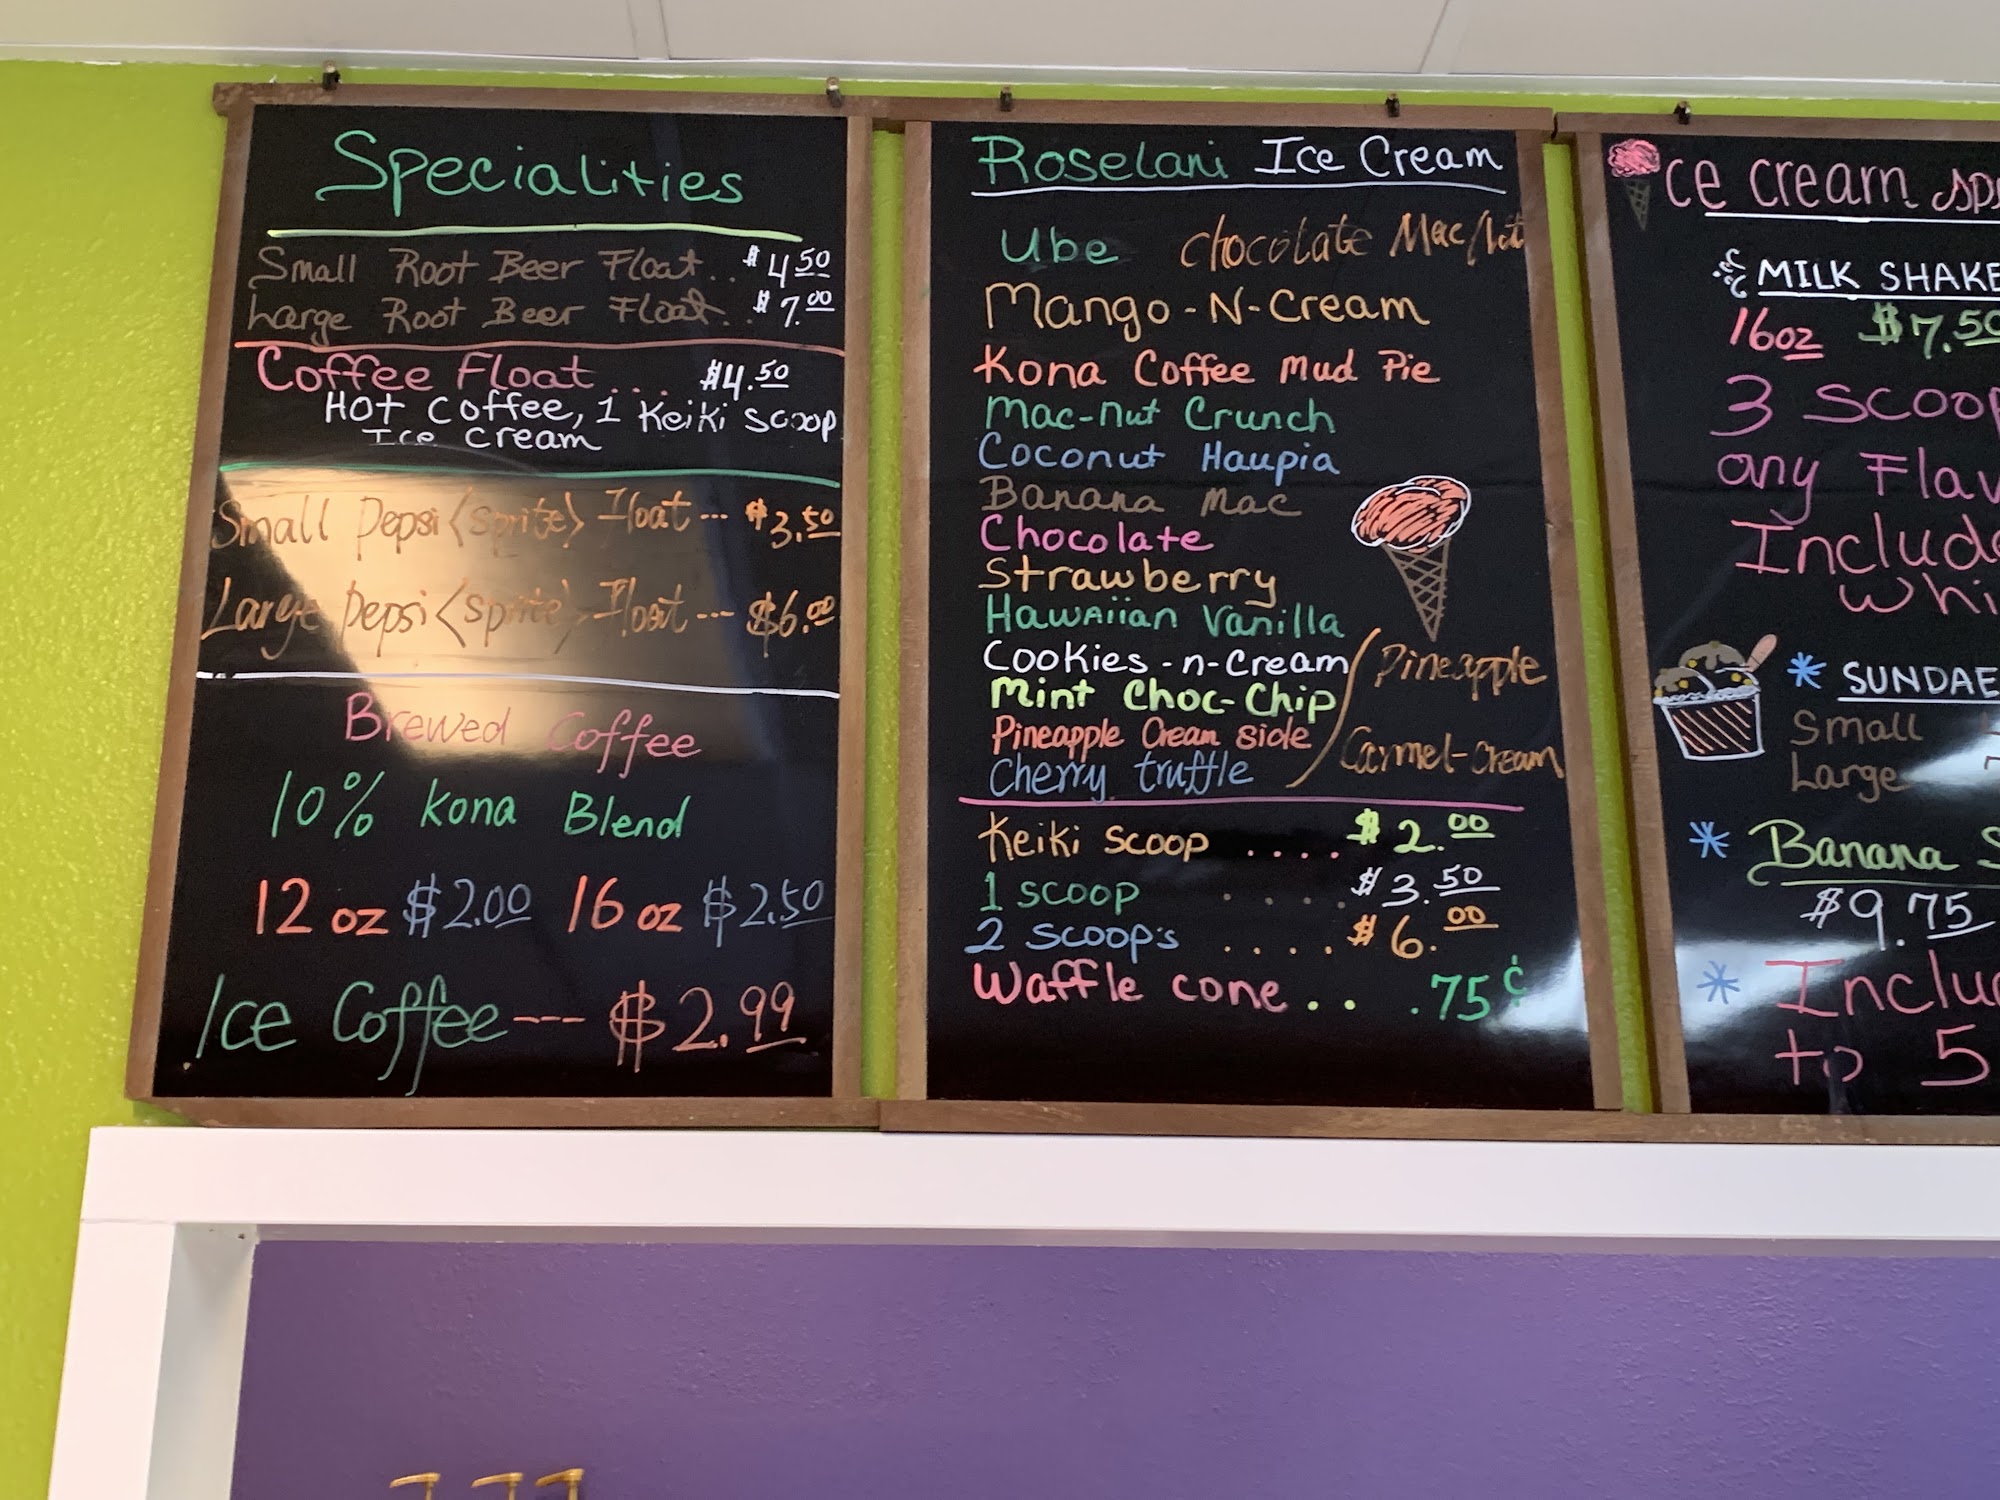 Specialities
Small Root Beer Float.. $4.50
Large Root Beer Float.. $7.00
Coffee Float.... $4.50
Hot coffee, 1 Keiki scoop
Ice cream
Small Pepsi <sprite> Float --- $3.50
Large Pepsi <sprite> Float --- $6.00
Brewed Coffee
10% Kona Blend
12 oz $2.00 16 oz $2.50
Ice Coffee --- $2.99
Roselani Ice Cream
Ube Chocolate Mac/
Mango-N-Cream
Kona Coffee Mud Pie
Mac-nut Crunch
Coconut Haupia
Banana Mac
Chocolate
Strawberry
Hawaiian Vanilla
Cookies-n-Cream / Pineapple
Mint Choc-Chip
Pineapple Cream side
Cherry truffle / Carmel-Cream
Keiki scoop .... $2.00
1 scoop .... $3.50
2 scoop's .... $6.00
Waffle cone .. .75¢
ce cream
MILK SHAKE
16oz $7.50
3 Scoop
any Flav
Include
Whi
* SUNDAE
Small
Large
* Banana S
$9.75
* Includ
to 5